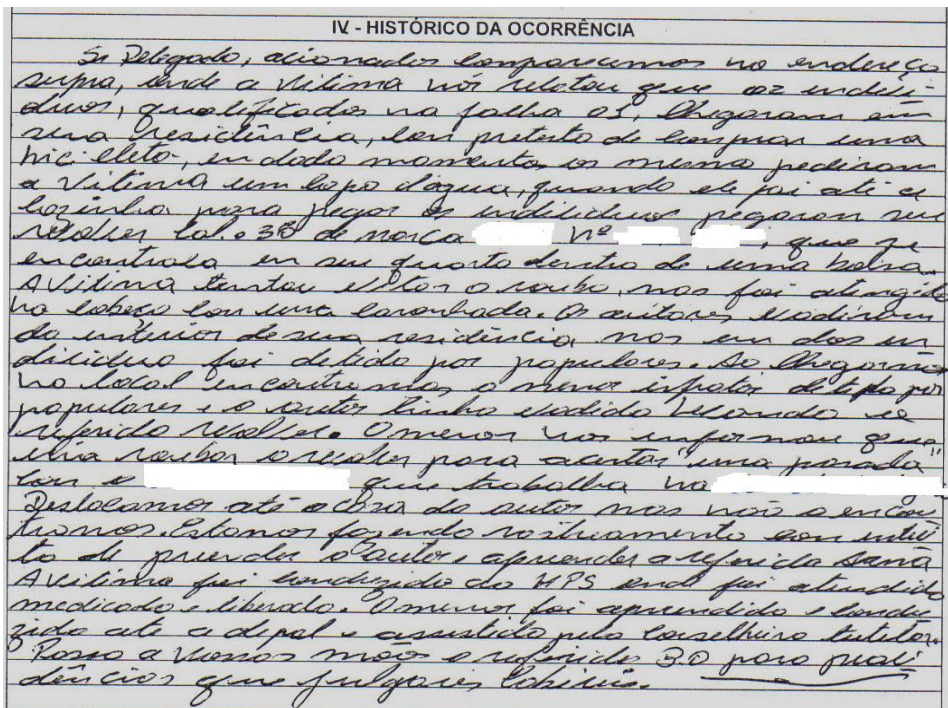 IV - HISTÓRICO DA OCORRÊNCIA
Sr Delegado, acionados comparecemos no endereço
supra, onde a vitima nós relatou que os indivi-
duos, qualificados na folha 03, chegaram em
sua residência, com pretesto de comprar uma
bicicleta, em dado momento os mesmo pediram
a vitima um copo d'agua, quando ele foi até a
cozinha para pegar os individuos pegaram seu
revolver cal. 38 de marca nº , que se
encontrava em seu quarto dentro de uma bolsa.
A vitima tentou evitar o roubo, mas foi atingido
na cabeça com uma coronhada. Os autores evadiram
do interior de sua residência mas um dos in
dividuo foi detido por populares. Ao chegarmos
no local encontramos o menor infrator detido por
populares e o autor tinha evadido levando o
referido revolver. O menor nos informou que
iria roubar o revolver para acertar "uma parada"
com o que trabalha na
Deslocamos até a casa do autor mas não o encon
tramos. Estamos fazendo rastreamento com intui
to de prender o autor e apreender a referida arma
A vitima foi conduzido ao HPS onde foi atendido
medicado e liberado. O menor foi apreendido e condu
zido até a depol e assistido pelo conselheiro tutelar.
Passo a vossas mãos o referido B.O para provi
dências que julgares cabiveis.